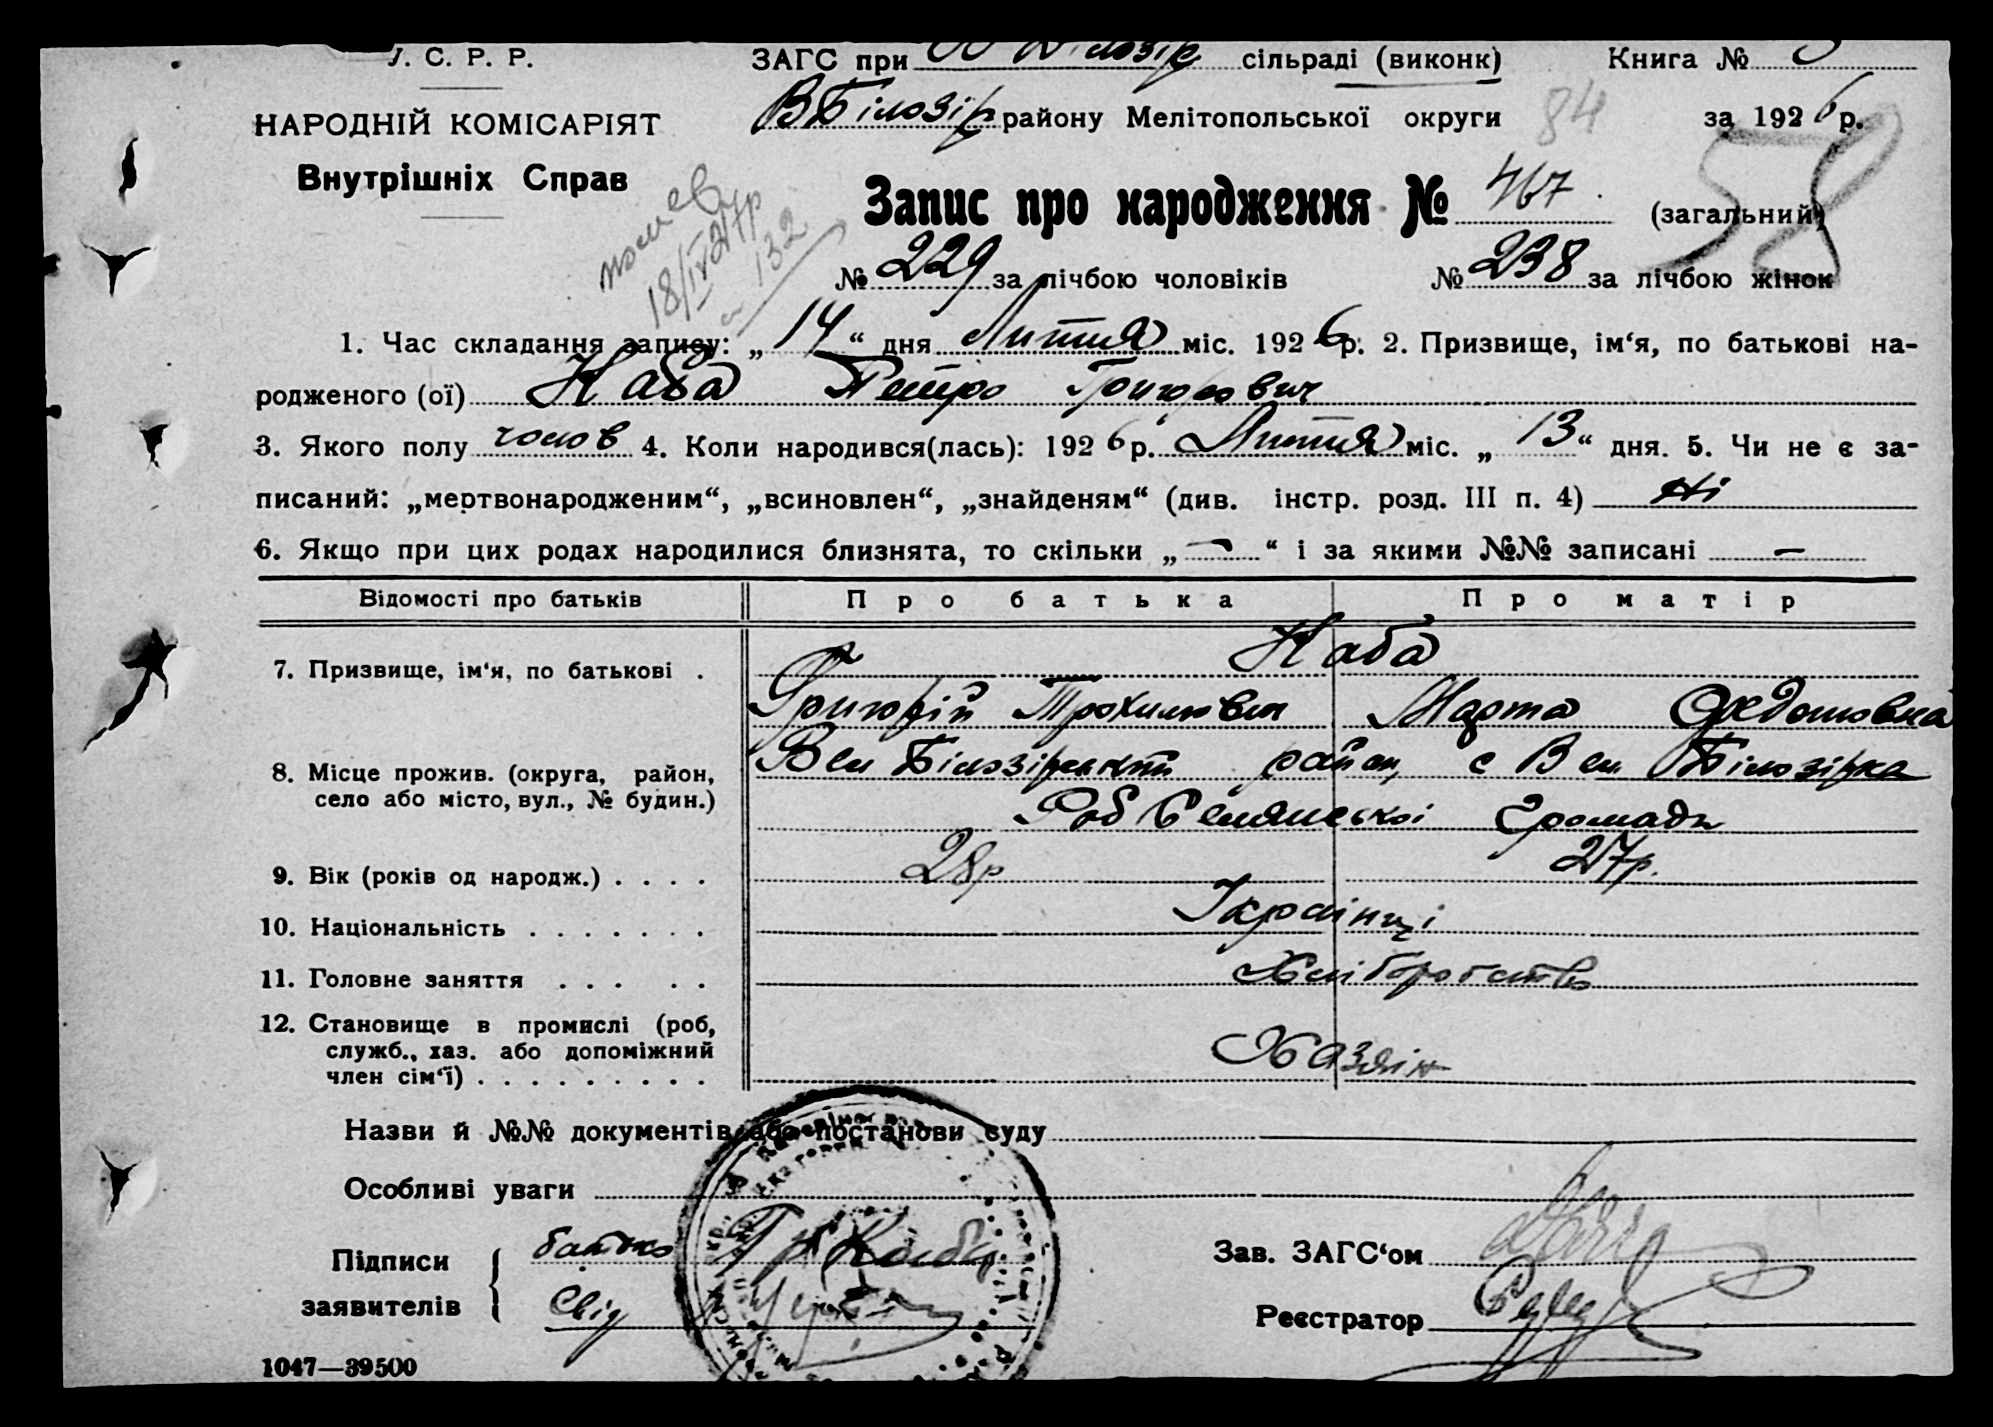 У. С. Р. Р.
НАРОДНІЙ КОМІСАРІЯТ
Внутрішніх Справ
ЗАГС при В Білозір сільраді (виконк) Книга №
В Білозір району Мелітопольської округи 84 за 1926 р.
58
Запис про народження № 467 (загальний)
18/IV 27р
132
№ 229 за лічбою чоловіків № 238 за лічбою жінок
1. Час складання запису: „14“ дня Липня міс. 1926 р. 2. Призвище, ім‘я, по батькові на-
родженого (ої) Каба Петро Григорович
3. Якого полу чолов 4. Коли народився(лась): 1926 р. Липня міс. „13“ дня. 5. Чи не є за-
писаний: „мертвонародженим“, „всиновлен“, „знайденям“ (див. інстр. розд. III п. 4) Ні
6. Якщо при цих родах народилися близнята, то скільки „—“ і за якими №№ записані —
Відомості про батьків Про батька Про матір
7. Призвище, ім‘я, по батькові . Каба
Григорій Трохимович Марта Федотовна
8. Місце прожив. (округа, район, село або місто, вул., № будин.) Вел Білозірський район, с Вел Білозірка
Роб Селянської Громади
9. Вік (років од народж.) . . . . 28р 27р.
10. Національність . . . . . . . Українці
11. Головне заняття . . . . . Хліборобство
12. Становище в промислі (роб, служб., хаз. або допоміжний член сім‘ї) . . . . . . . . . Хазяін
Назви й №№ документів або постанови суду
Особливі уваги
Підписи заявителів
батько Гр Каба
Свід
Зав. ЗАГС‘ом
Реєстратор
1047—39500